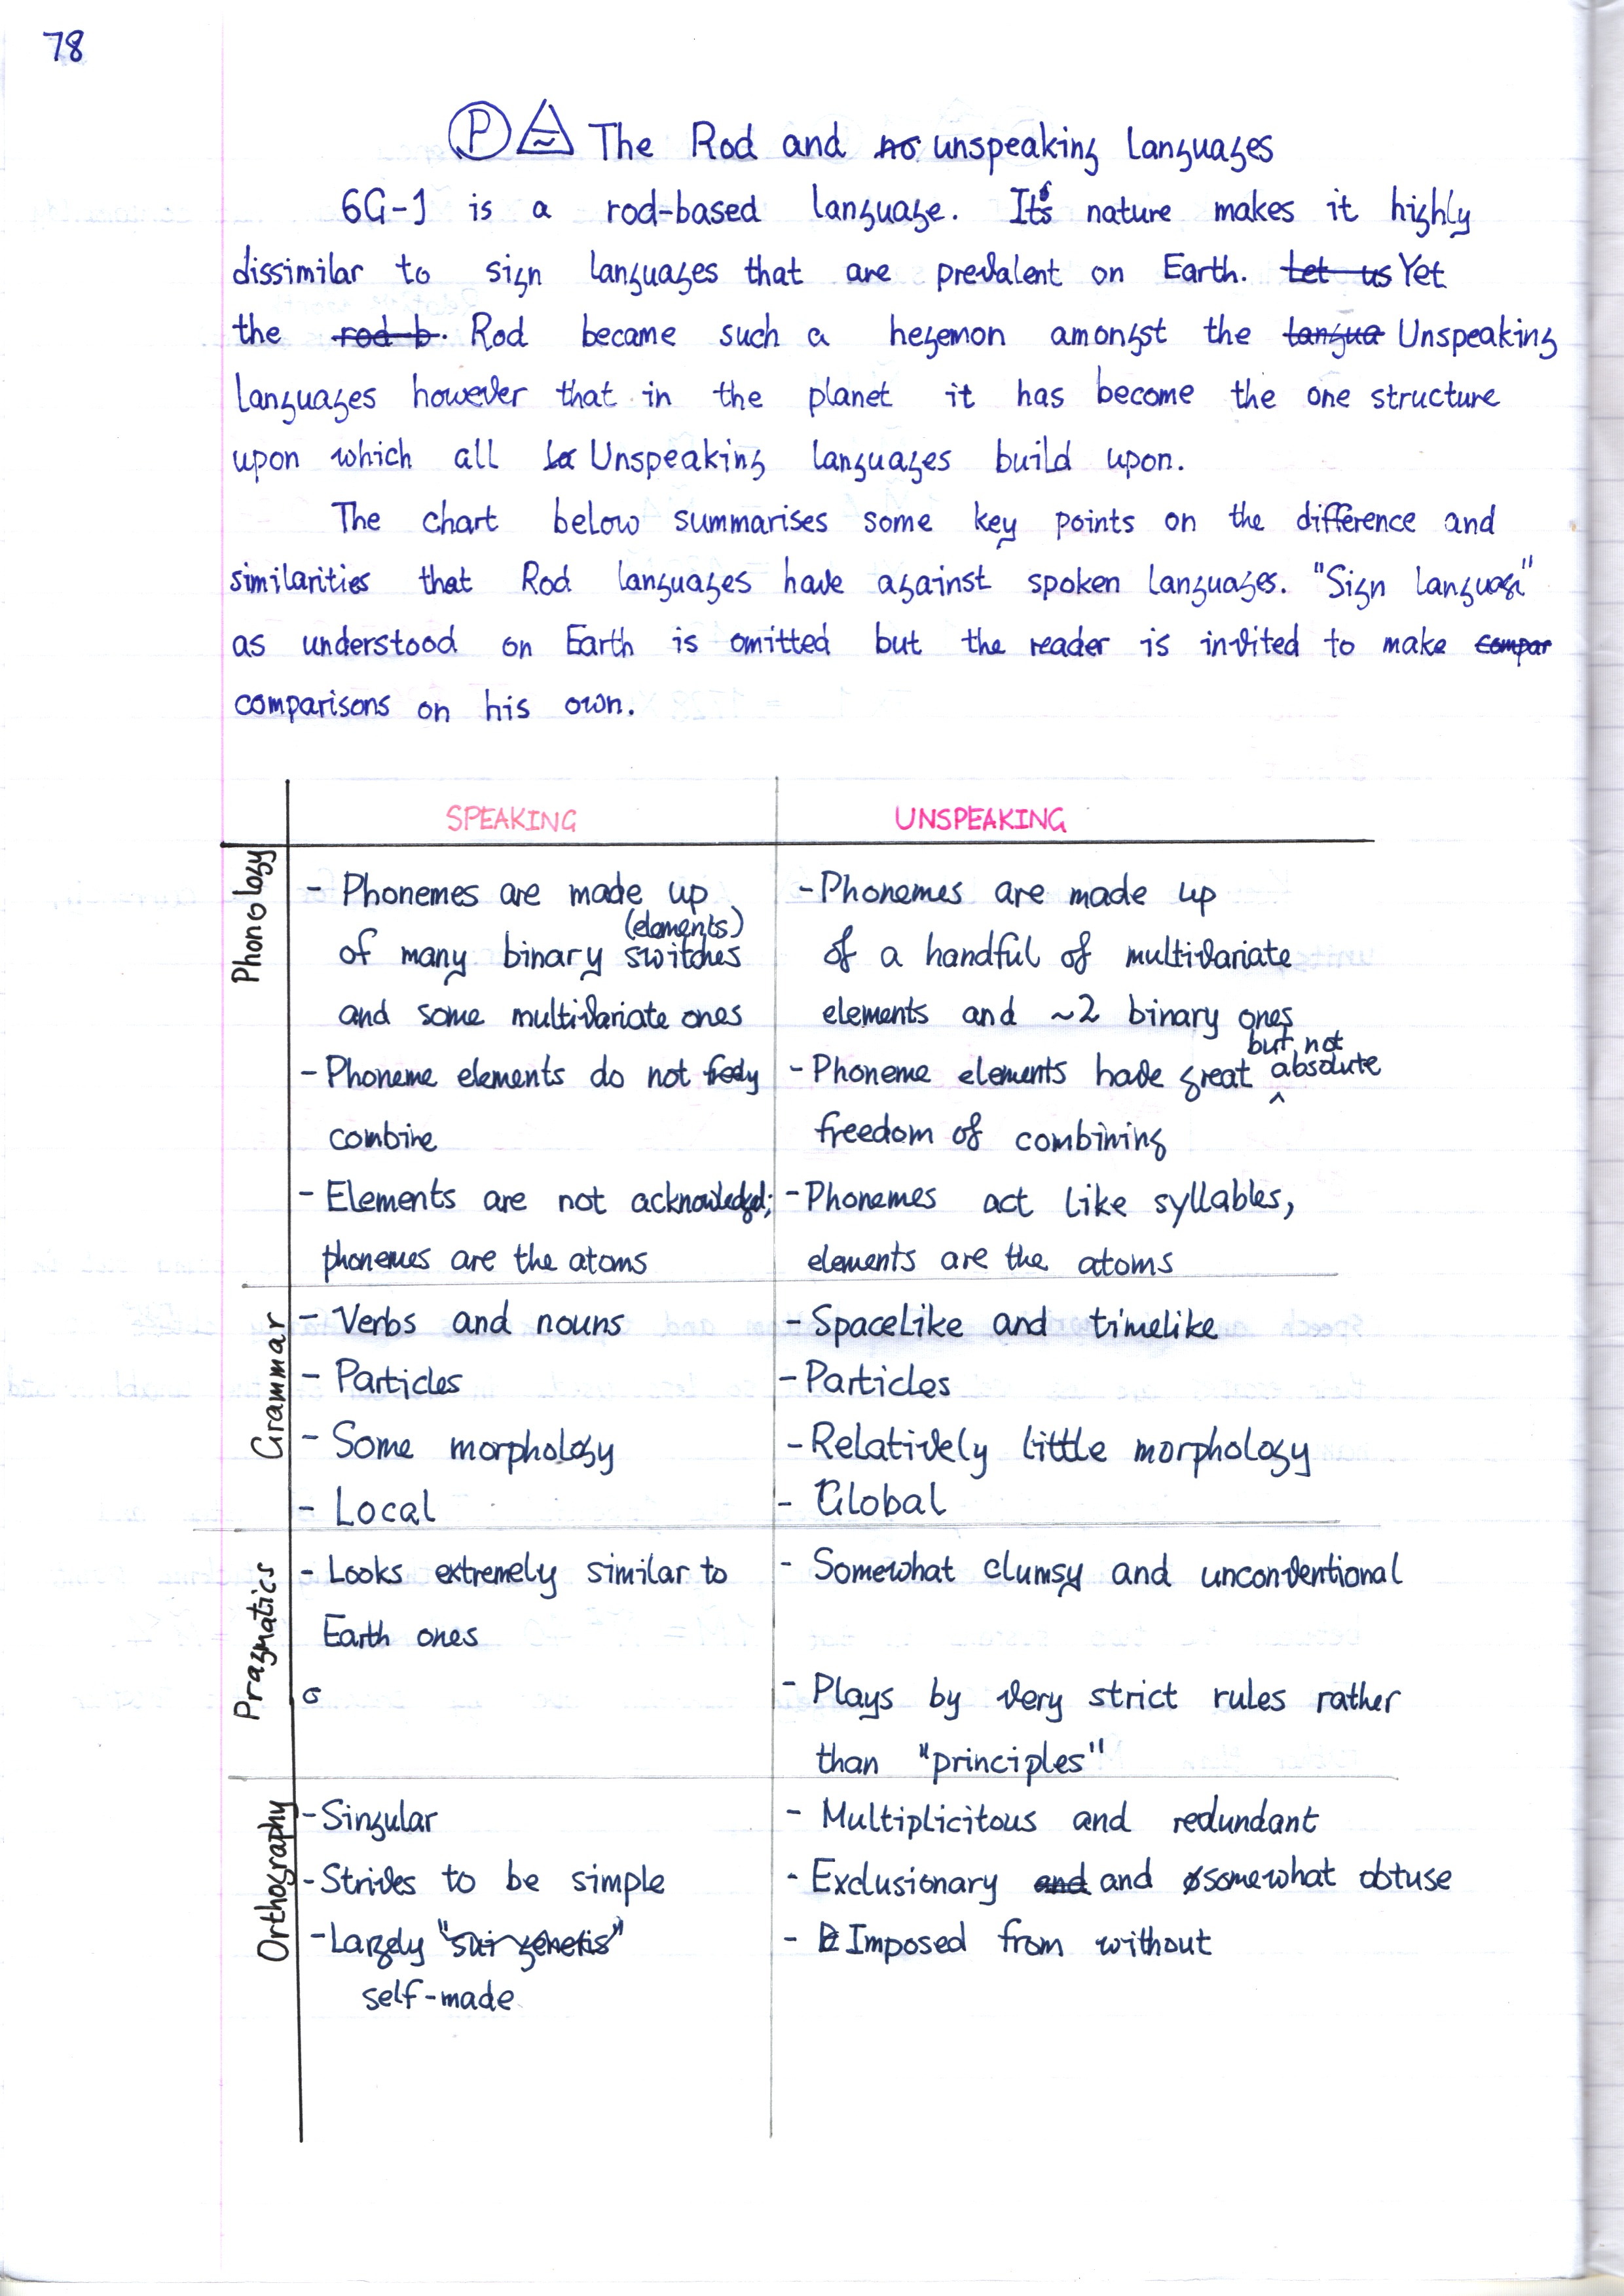 78
P ≈ The Rod and no unspeaking Languages
6G-1 is a rod-based language. Its nature makes it highly
dissimilar to sign languages that are prevalent on Earth. Let us Yet
the rod b. Rod became such a hegemon amongst the langua Unspeaking
Languages however that in the planet it has become the one structure
upon which all La Unspeaking languages build upon.
The chart below summarises some key points on the difference and
similarities that Rod languages have against spoken languages. "Sign language"
as understood on Earth is omitted but the reader is invited to make compar
comparisons on his own.
SPEAKING
UNSPEAKING
Phonology
- Phonemes are made up
(elements)
of many binary switches
and some multivariate ones
- Phoneme elements do not freely
combine
- Elements are not acknowledged;
phonemes are the atoms
- Phonemes are made up
of a handful of multivariate
elements and ~2 binary ones
but not
- Phoneme elements have great ^ absolute
freedom of combining
- Phonemes act like syllables,
elements are the atoms
Grammar
- Verbs and nouns
- Particles
- Some morphology
- Local
- Spacelike and timelike
- Particles
- Relatively little morphology
- Global
Pragmatics
- Looks extremely similar to
Earth ones
- Somewhat clumsy and unconventional
- Plays by very strict rules rather
than "principles"
Orthography
- Singular
- Strives to be simple
- Largely "sui generis"
self-made
- Multiplicitous and redundant
- Exclusionary and and somewhat obtuse
- Imposed from without